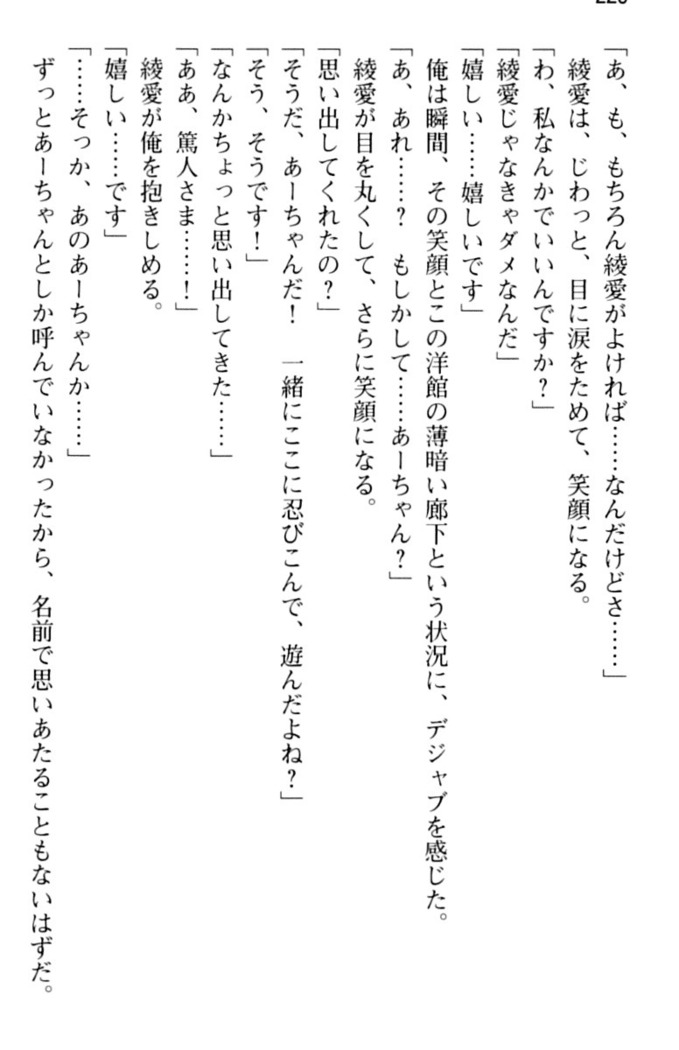 「あ、も、もちろん綾愛がよければ……なんだけどさ……」
綾愛は、じわっと、目に涙をためて、笑顔になる。
「わ、私なんかでいいんですか？」
「綾愛じゃなきゃダメなんだ」
「嬉しい……嬉しいです」
俺は瞬間、その笑顔とこの洋館の薄暗い廊下という状況に、デジャブを感じた。
「あ、あれ……？　もしかして……あーちゃん？」
綾愛が目を丸くして、さらに笑顔になる。
「思い出してくれたの？」
「そうだ、あーちゃんだ！　一緒にここに忍びこんで、遊んだよね？」
「そう、そうです！」
「なんかちょっと思い出してきた……」
「ああ、篤人さま……！」
綾愛が俺を抱きしめる。
「嬉しい……です」
「……そっか、あのあーちゃんか……」
ずっとあーちゃんとしか呼んでいなかったから、名前で思いあたることもないはずだ。